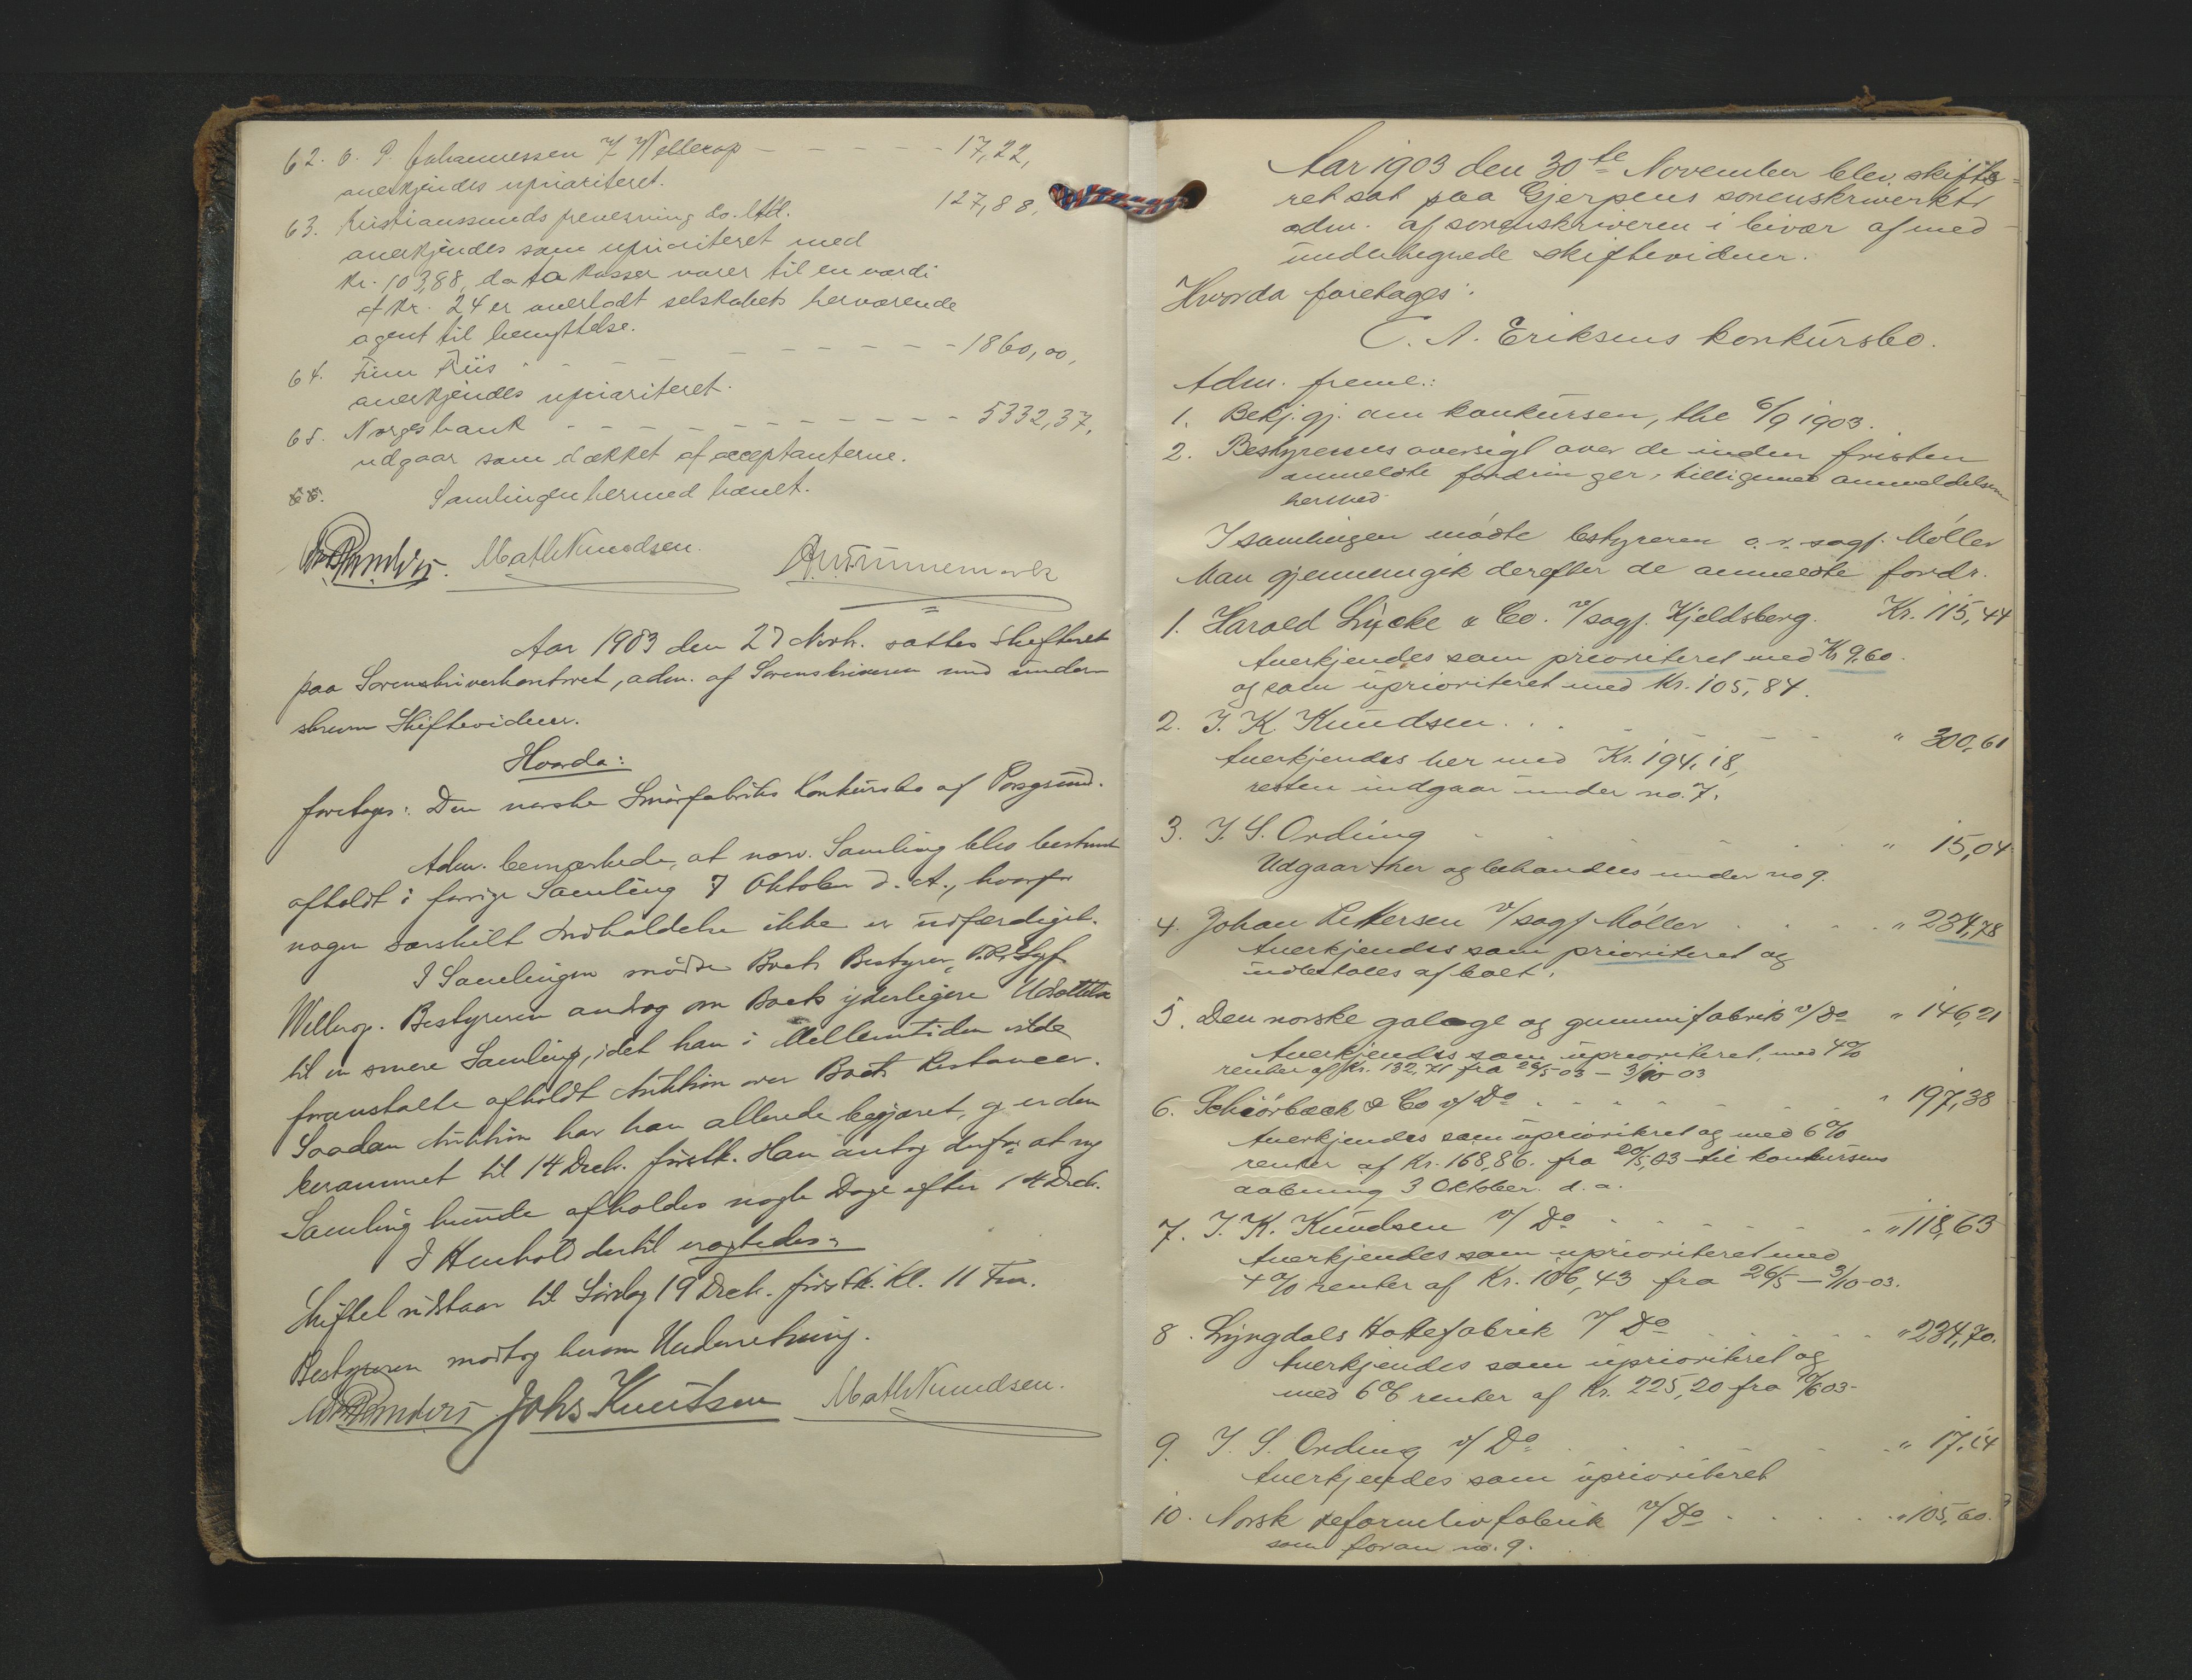 62. O. P. Johannessen v/ Wellerop - - - - - 17,22,
anerkjendes uprioriteret.
63. Kristianssunds preserving Co. Ltd. 127,88,
anerkjendes som uprioriteret med
Kr. 103,88, da to kasser varer til en værdi
af Kr. 24 er overladt selskabets herværende
agent til benyttelse.
64. Finn Friis - - - - - - - - 1860,00,
anerkjendes uprioriteret.
65. Norges bank - - - - - - - - 5332,37,
udgaar som dækket af acceptanterne.
66. Samlingen hermed hævet.
MathKnudsen.
Aar 1903 den 27 Novb. sattes Skifteret
paa Sorenskriverkontoret, adm. af Sorenskriveren med under-
skrevne Skiftevidner.
Hvorda:
foretoges: Den norske Smørfabriks Konkursbo af Porsgrund.
Adm. bemærkede, at nærv. Samling blev bestemt
afholdt i forrige Samling 7 Oktober d. A., hvorfor
nogen særskilt Indkaldelse ikke er udfærdiget.
I Samlingen mødte Boets Bestyrer, O.R. Sagf.
Wellerop. Bestyreren androg om Boets yderligere Udsættelse
til en senere Samling, idet han i Mellemtiden vilde
foranstalte afholdt Auktion over Boets Restancer.
Saadan Auktion har han allerede begjæret, og er den
berammet til 14 Decb. førstk. Han antog derfor at ny
Samling kunde afholdes nogle Dage efter 14 Decb.
I Henhold dertil vragtedes:
Skiftet udstaar til Lørdag 19 Decb. førstk. Kl. 11 Fm.
Bestyreren modtog herom Underretning.
Johs Knutsen MathKnudsen.
Aar 1903 den 30te November blev skifte-
ret sat paa Gjerpens sorenskriverktr
adm. af sorenskriveren i bivær af med-
undertegnede skiftevidner.
Hvorda foretages:
C. A. Eriksens konkursbo.
Adm. freml.:
1. Bekj.gj. om konkursen, tlie 6/9 1903.
2. Bestyrerens oversigt over de inden fristen
anmeldte fordringer, tilligemed anmeldelsen
hermed.
I samlingen mødte bestyreren o.r.sagf. Møller
Man gjennemgik derefter de anmeldte fordr.
1. Harald Lycke & Co. v/sagf. Kjeldsberg. Kr. 115,44
Anerkjendes som prioriteret med Kr 9,60.
og som uprioriteret med Kr. 105,84.
2. J. K Knudsen . . . " 300,61
Anerkjendes her med Kr. 194,18,
resten indgaar under no. 7.
3. J. S. Ording . . . " 15,04
Udgaar her og behandles under no 9.
4. Johan Pettersen v/sagf Møller . . . . " 234,78
Anerkjendes som prioriteret og
indbetales af boet.
5. Den norske galoge og gummifabrik v/Do " 146,21
Anerkjendes som uprioriteret, med 4%
renter af Kr. 132,71 fra 26/5-03 - 3/10-03
6. Schiørbeck & Co v/ Do . . . . . " 197,38
Anerkjendes som uprioriteret og med 6%
renter af Kr. 168,86. fra 20/5 03 til konkursens
aabning 3 Oktober. d. a.
7. J. K. Knudsen v/ Do . . . . . " 118,63
Anerkjendes som uprioriteret med
4% renter af Kr. 106,43 fra 26/5 - 3/10-03.
8. Lyngdals Hattefabrik v/ Do . . . . " 234,70.
Anerkjendes som uprioriteret og
med 6% renter af Kr. 225,20 fra 03-
9. J. S. Ording v/ Do . . . . " 17,14
Anerkjendes som uprioriteret
10. Norsk reformlivfabrik v/ Do . . . . " 105,60.
som foran no. 9.